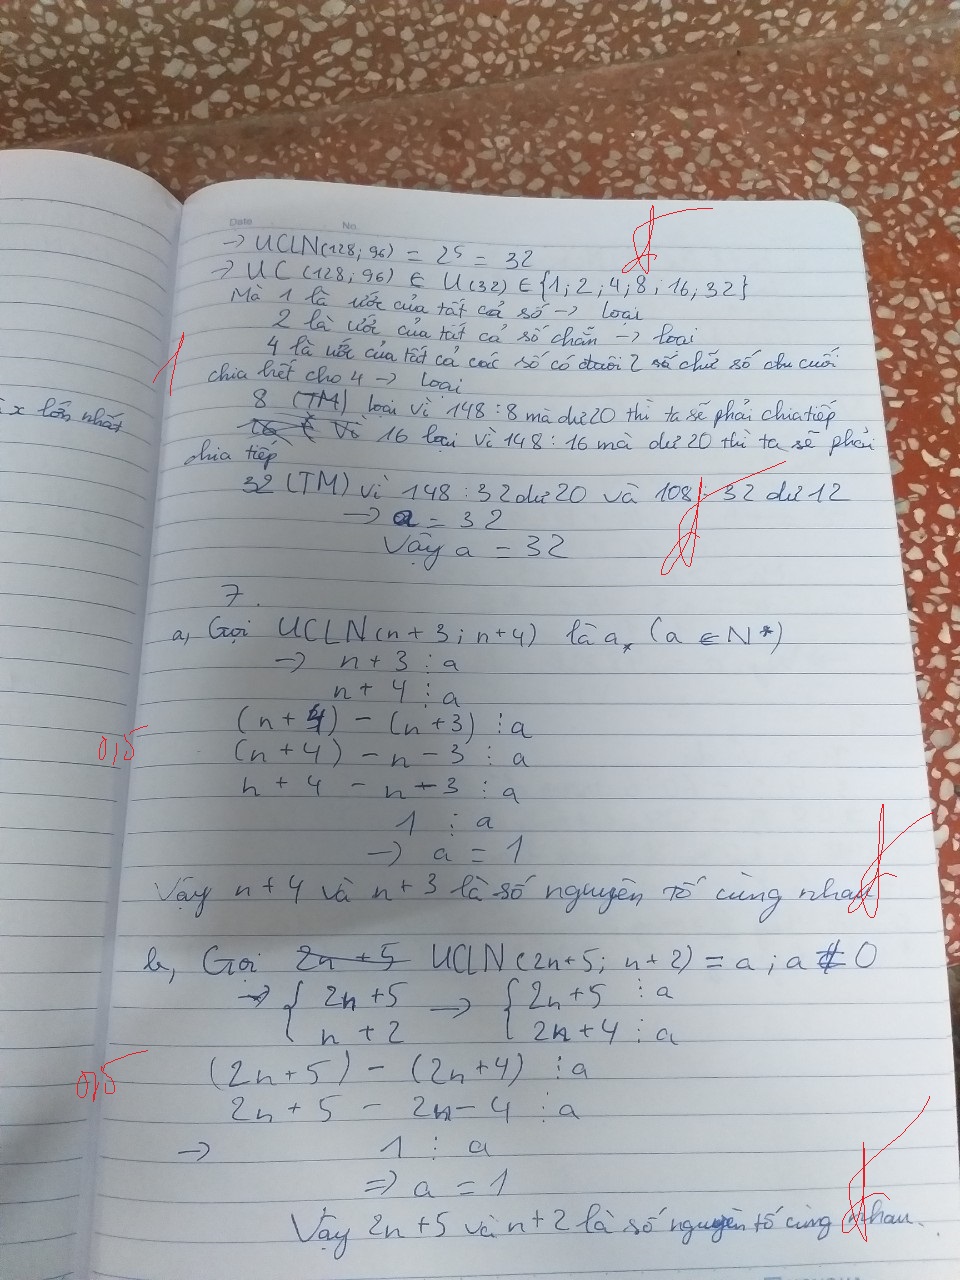 Date No.
→ ƯCLN(128; 96) = 2⁵ = 32
→ ƯC (128; 96) ∈ Ư(32) ∈ {1; 2; 4; 8; 16; 32}
Mà 1 là ước của tất cả số → loại
2 là ước của tất cả số chẵn → loại
4 là ước của tất cả các số có đuôi 2 chữ số cuối
1
chia hết cho 4 → loại
8 (TM) loại vì 148 : 8 mà dư 20 thì ta sẽ phải chia tiếp
x lớn nhất
16 loại vì 148 : 16 mà dư 20 thì ta sẽ phải
chia tiếp
32 (TM) vì 148 : 32 dư 20 và 108 : 32 dư 12
→ a = 32
Vậy a = 32
7.
a, Gọi ƯCLN(n + 3; n + 4) là a, (a ∈ N*)
→ n + 3 ⋮ a
n + 4 ⋮ a
(n + 4) − (n + 3) ⋮ a
0,5
(n + 4) − n − 3 ⋮ a
n + 4 − n − 3 ⋮ a
1 ⋮ a
→ a = 1
Vậy n + 4 và n + 3 là số nguyên tố cùng nhau
b, Gọi 2n + 5 ƯCLN (2n+5; n+2) = a; a ≠ 0
→ { 2n + 5 → { 2n + 5 ⋮ a
n + 2 2n + 4 ⋮ a
0,5
(2n + 5) − (2n + 4) ⋮ a
2n + 5 − 2n − 4 ⋮ a
→ 1 ⋮ a
⇒ a = 1
Vậy 2n + 5 và n + 2 là số nguyên tố cùng nhau.